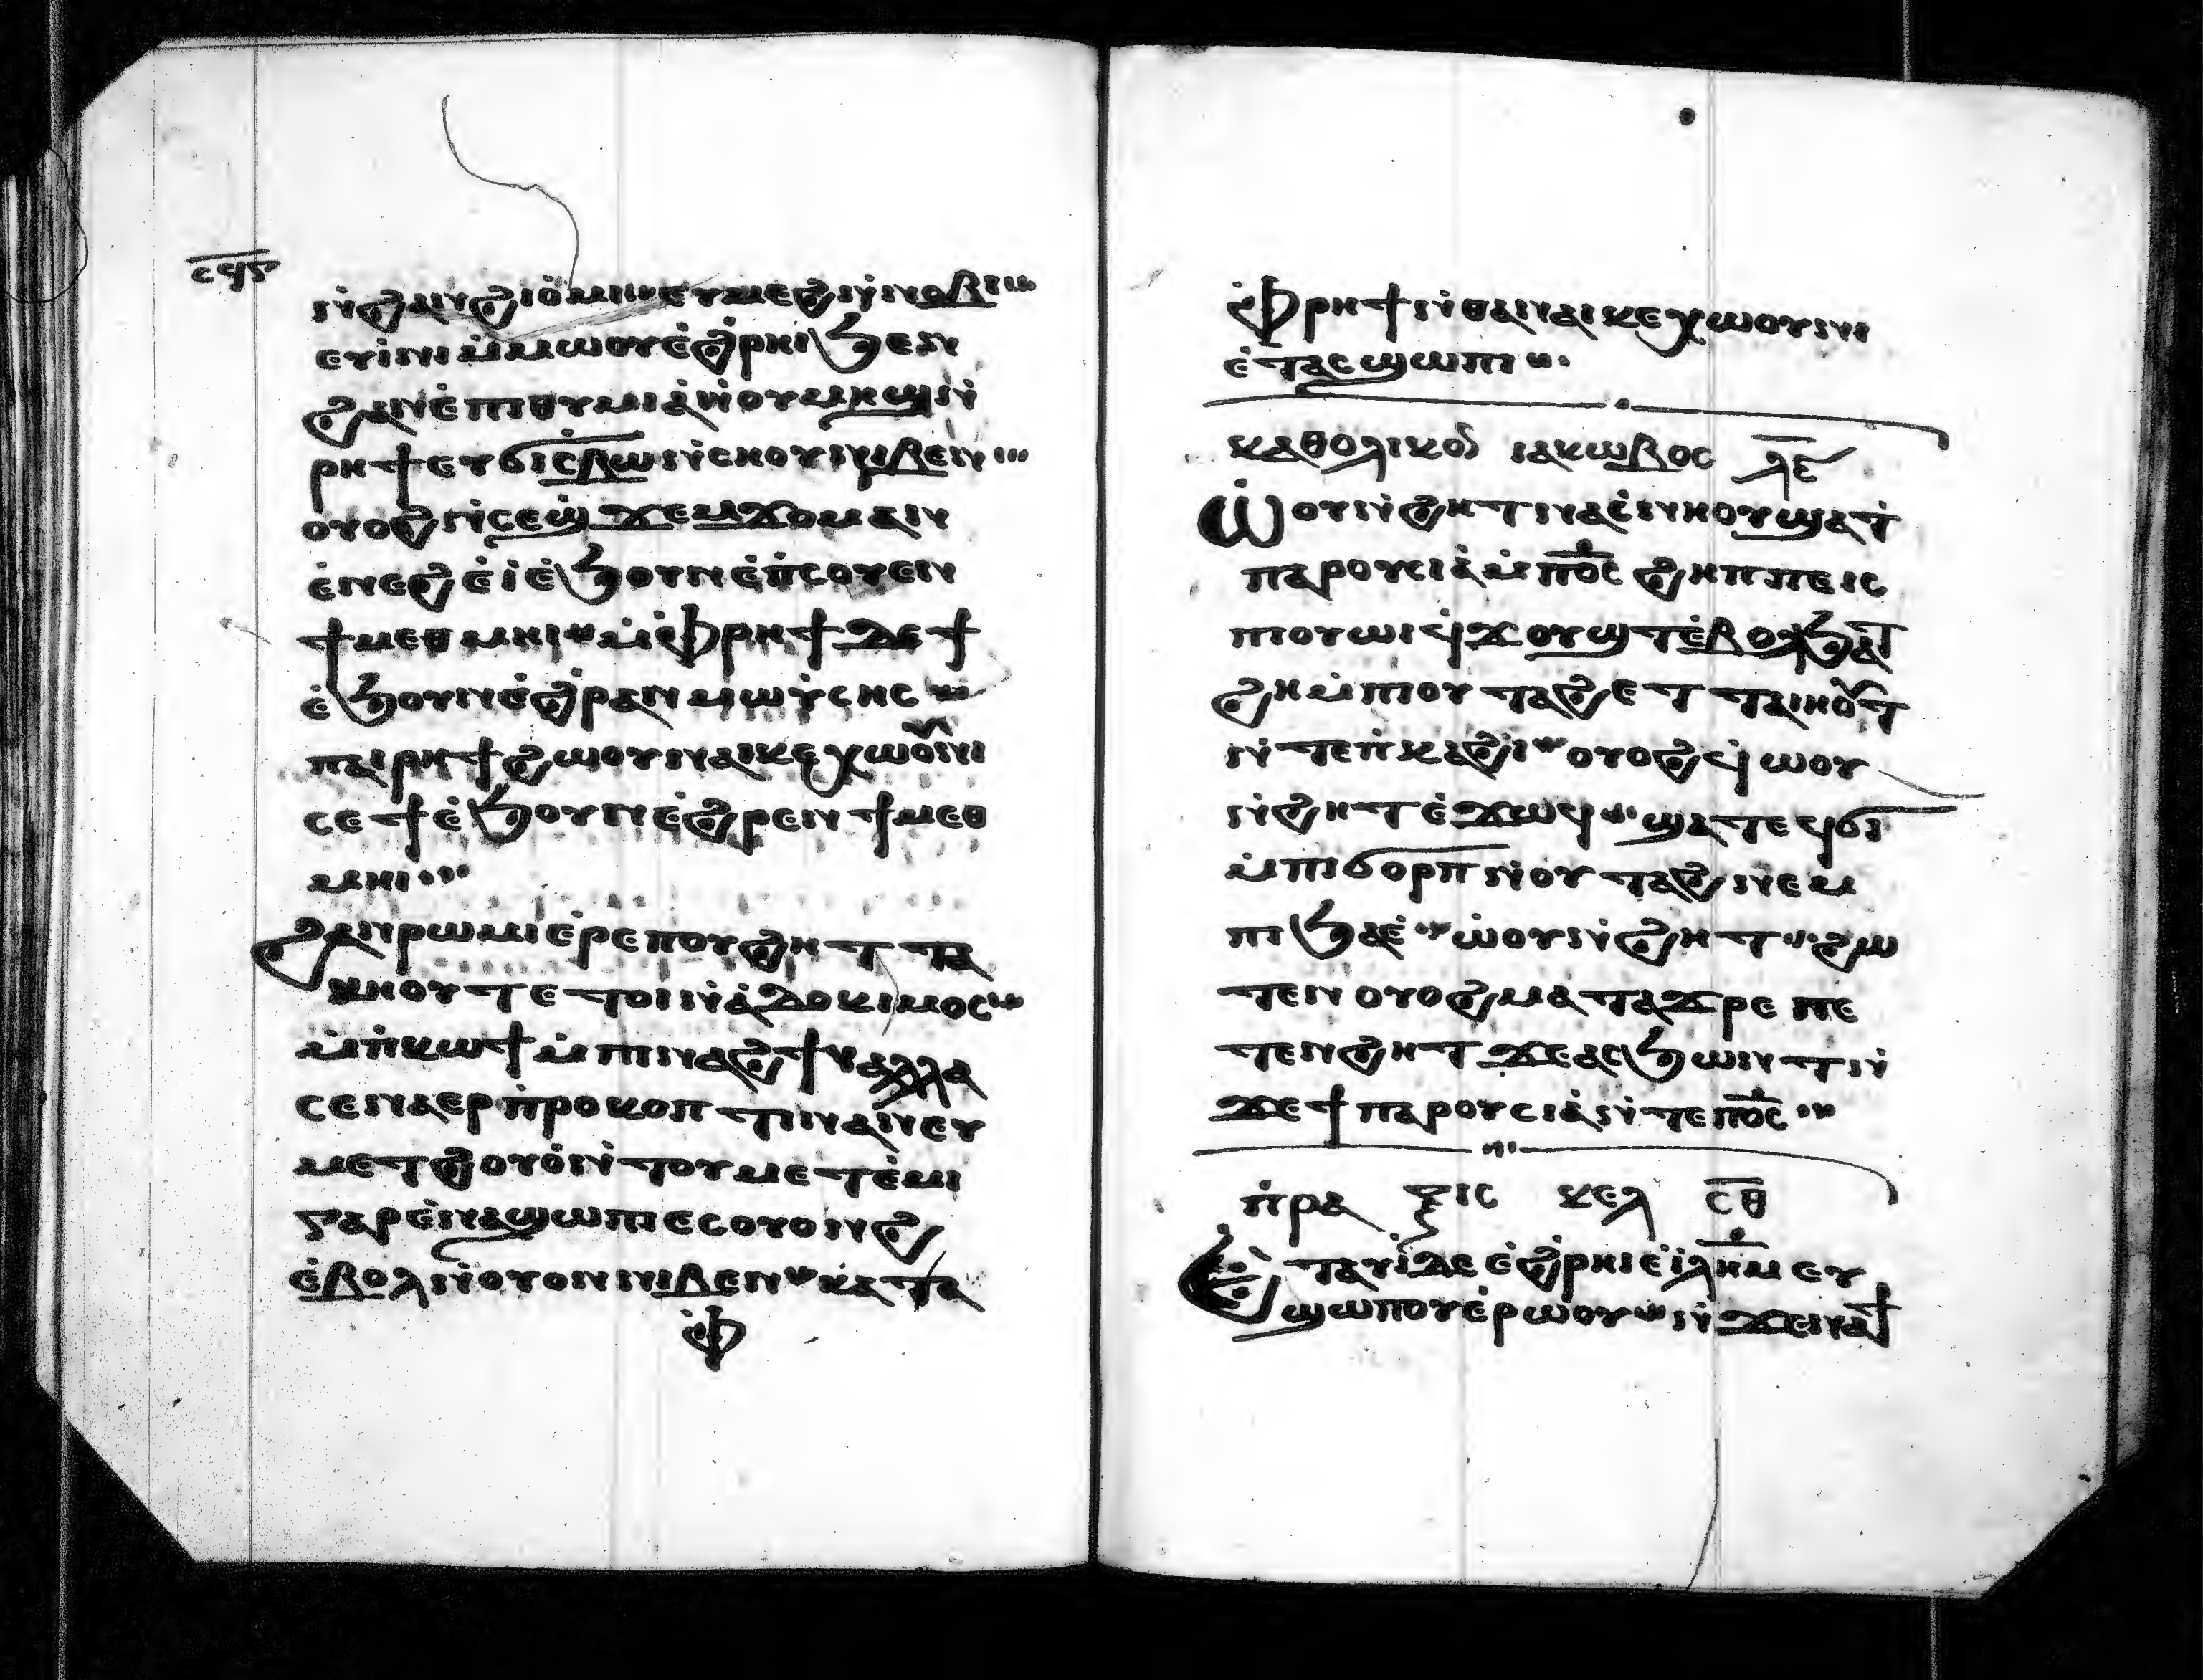 ⲥϥⲋ
ⲛ̀ϩⲁⲛϩⲓⲟ̀ⲙⲓ ⲉⲩⲙⲉϩ ⲛ̀ⲛⲟⲃⲓ
ⲉⲩⲓ̀ⲛⲓ ⲙ̀ⲙⲱⲟⲩ ⲉ̀ϩ̀ⲣⲏⲓ ϧⲉⲛ
ϩⲁⲛⲉ̀ⲡⲓⲑⲩⲙⲓⲁ̀ ⲛ̀ⲟⲩⲙⲏϣ ⲛ̀
ⲣⲏϯ ⲉⲩϭⲓⲥ̀ⲃⲱ ⲛ̀ⲥⲏⲟⲩ ⲛⲓⲃⲉⲛ
ⲟⲩⲟϩ ⲛ̀ⲥⲉϣϫⲉⲙϫⲟⲙ ⲁⲛ
ⲉ̀ⲛⲉϩ ⲉ̀ⲓ̀ ⲉ̀ϧⲟⲩⲛ ⲉ̀ⲡ̀ⲥⲟⲩⲉⲛ
ϯⲙⲉⲑⲙⲏⲓ ⲙ̀ⲫ̀ⲣⲏϯ ⲇⲉ ϯ
ⲉ̀ϧⲟⲩⲛ ⲉ̀ϩ̀ⲣⲁⲛ ⲙⲱⲩ̀ⲥⲏⲥ
ⲡⲁⲓⲣⲏϯ ϩⲱⲟⲩ ⲛⲁⲓⲕⲉⲭⲱⲟⲩⲛⲓ
ⲥⲉϯ ⲉ̀ϧⲟⲩⲛ ⲉ̀ϩ̀ⲣⲉⲛ ϯⲙⲉⲑ
ⲙⲏⲓ
ϩⲁⲛⲣⲱⲙⲓ ⲉ̀ⲣⲉ ⲡⲟⲩϩⲏⲧ ⲧⲁ
ⲕⲏⲟⲩⲧ ⲉⲧⲟⲓ ⲛ̀ⲁ̀ⲇⲟⲕⲓⲙⲟⲥ
ⲙ̀ⲡ̀ⲕⲱϯ ⲙ̀ⲡⲓⲛⲁϩϯ ⲁⲗⲗⲁ
ⲥⲉⲛⲁⲉⲣⲡ̀ⲣⲟⲕⲟⲡⲧⲓⲛ ⲁⲛ ⲉⲩ
ⲙⲉⲧϩⲟⲩⲟ̀ ⲛ̀ⲧⲟⲩⲙⲉⲧⲉ̀ⲙⲓ
ⲅⲁⲣ ⲉ̀ⲛⲁϣⲱⲡⲓ ⲉⲥⲟⲩⲟⲛϩ
ⲉ̀ⲃⲟⲗ ⲛ̀ⲟⲩⲟⲛ ⲛⲓⲃⲉⲛ ⲕⲁⲧⲁ
ⲫ̀
ⲫ̀ⲣⲏϯ ⲛ̀ⲑⲁ ⲛⲁⲓⲕⲉⲭⲱⲟⲩⲛⲓ
ⲉ̀ⲧⲁⲥϣⲱⲡⲓ
ⲕⲁⲑⲟⲗⲓⲕⲟⲛ ⲓⲁⲕⲱⲃⲟⲥ ⲗⲉ
ⲱ̀ⲟⲩ ⲛ̀ϩⲏⲧ ⲛⲁⲥ̀ⲛⲏⲟⲩ ϣⲁ ϯ
ⲡⲁⲣⲟⲩⲥⲓⲁ̀ ⲙ̀ⲡⲟ̅ⲥ̅ ϩⲏⲡⲡⲉ ⲓⲥ
ⲡⲓⲟⲩⲱⲓ ϥϫⲟⲩϣⲧ ⲉ̀ⲃⲟⲗ ϧⲁ
ϩⲏ ⲙ̀ⲡⲓⲟⲩⲧⲁϩ ⲉⲧⲧⲁⲓⲏⲟⲩⲧ
ⲛ̀ⲧⲉ ⲡ̀ⲕⲁϩⲓ ⲟⲩⲟϩ ϥⲱⲟⲩ
ⲛ̀ϩⲏⲧ ⲉ̀ϫⲱϥ ϣⲁⲧⲉϥϭⲓ
ⲙ̀ⲡⲓϭⲟⲣⲡ ⲛ̀ⲟⲩⲧⲁϩ ⲛⲉⲙ
ⲡⲓϧⲁⲉ̀ ⲱ̀ⲟⲩ ⲛ̀ϩⲏⲧ ϩⲱ
ⲧⲉⲛ ⲟⲩⲟϩ ⲙⲁⲧⲁϫⲣⲉ ⲡⲉ
ⲧⲉⲛϩⲏⲧ ϫⲉ ⲁⲥϧⲱⲛⲧ ⲛ̀
ϫⲉ ϯⲡⲁⲣⲟⲩⲥⲓⲁ̀ ⲛ̀ⲧⲉ ⲡⲟ̅ⲥ̅
ⲡ̀ⲣⲁⲝⲓⲥ ⲕⲉⲗ ⲥⲑ
Ⲉⲧⲁⲩⲓ̀ ⲇⲉ ⲉ̀ϩ̀ⲣⲏⲓ ⲉ̀ⲓ̀ⲗ̅ⲏ̅ⲙ̅ ⲉⲩ
ϣⲱⲡⲟⲩ ⲉ̀ⲣⲱⲟⲩ ⲛ̀ϫⲉ ⲛⲁϯ